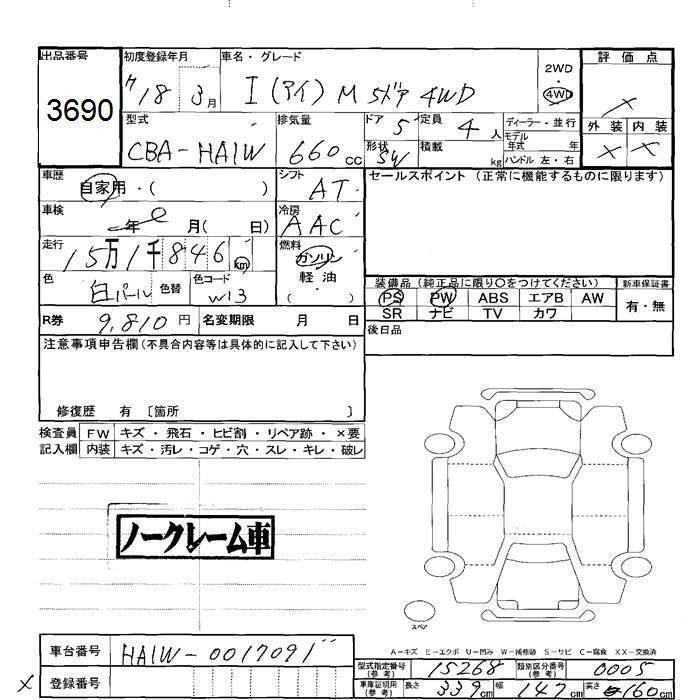 出品番号
3690
初度登録年月
18 3月
車名・グレード
I (アイ) M 5ドア 4WD
2WD
4WD
評価点
×
外装 内装
× ×
型式
CBA-HA1W
排気量
660cc
ドア 5
形状 SW
定員 4人
積載 kg
ディーラー・並行
モデル年式 年
ハンドル 左・右
車歴
自家用・( )
シフト
AT
セールスポイント (正常に機能するものに限ります)
車検
年 月( 日)
冷房
AAC
走行
15万1千846km
燃料
ガソリン
軽油
( )
色
白パール
色替
色コード
W13
装備品 (純正品に限り○をつけてください)
PS PW ABS エアB AW
SR ナビ TV カワ
新車保証書
有・無
R券 9,810円
名変期限 月 日
後日品
注意事項申告欄 (不具合内容等は具体的に記入して下さい)
修復歴 有 [箇所 ]
検査員 FW キズ・飛石・ヒビ割・リペア跡・×要
記入欄 内装 キズ・汚レ・コゲ・穴・スレ・キレ・破レ
ノークレーム車
スペア
A-キズ E-エクボ U-凹み W-補修跡 S-サビ C-腐食 XX-交換済
車台番号 HA1W-0017091
型式指定番号(参考) 15268
類別区分番号(参考) 0005
× 登録番号
車庫証明用(参考) 長さ 339cm 幅 147cm 高さ 160cm